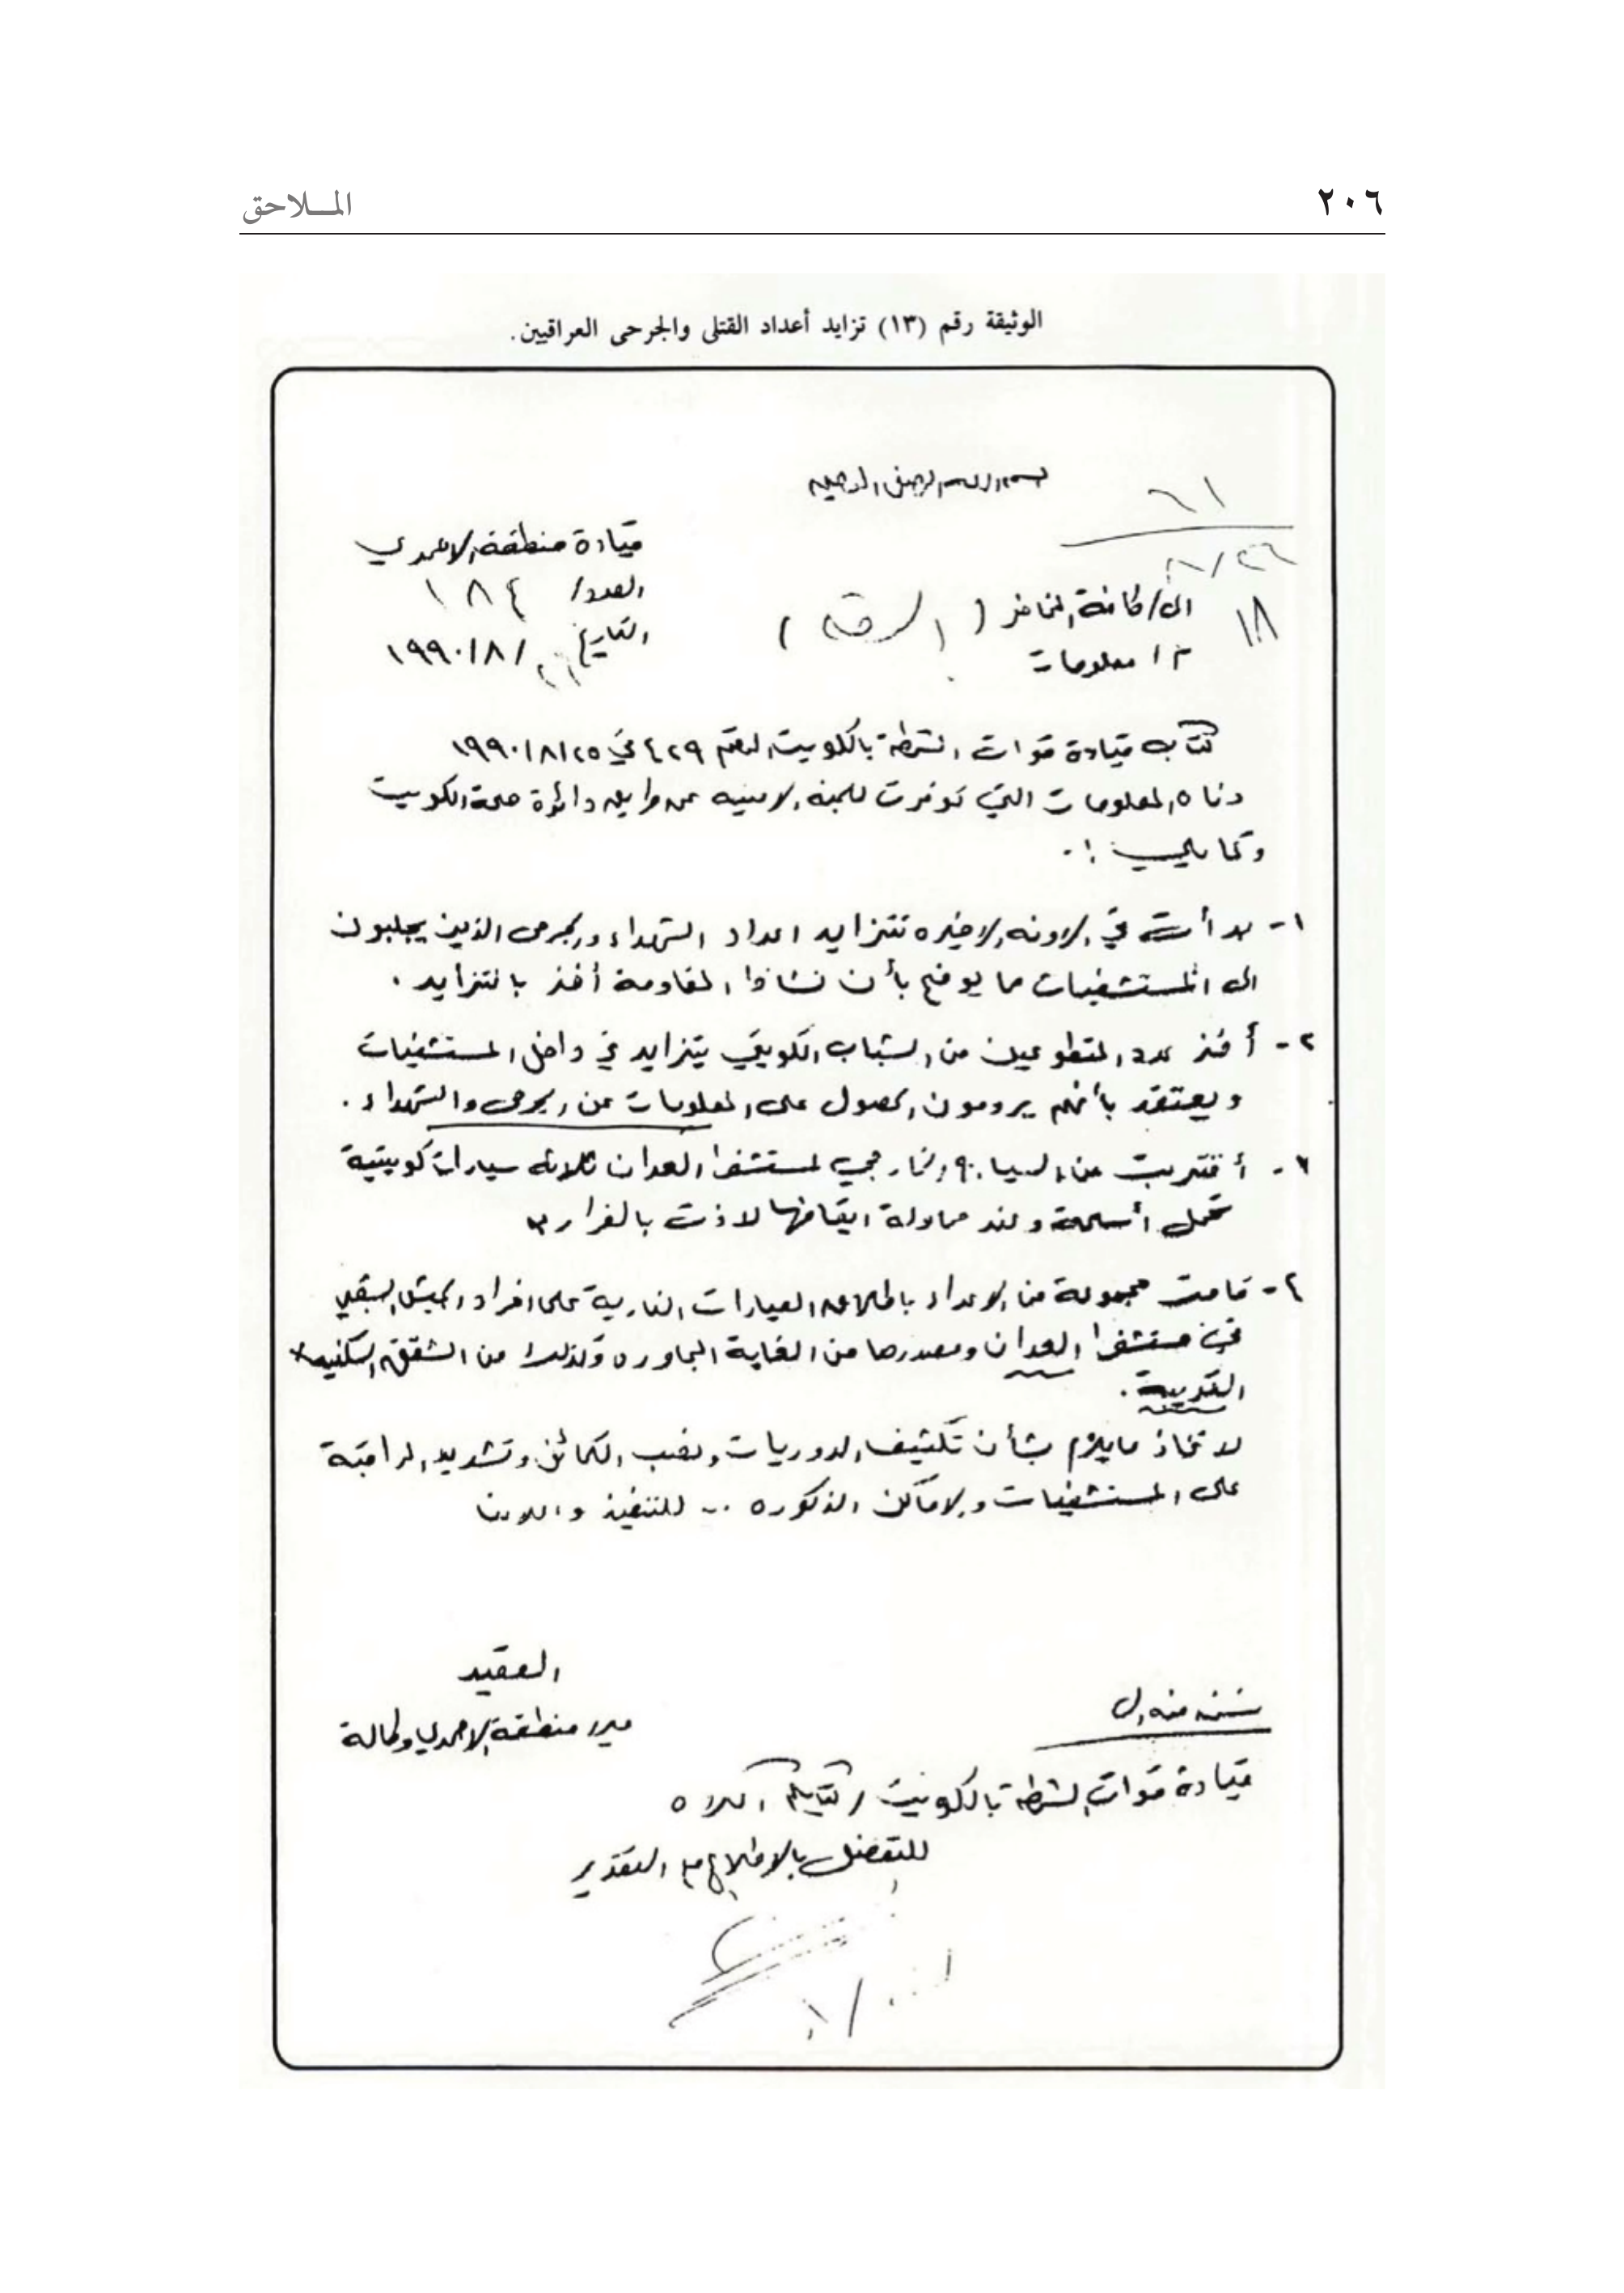 ٢٠٦
المـلاحق
الوثيقة رقم (١٣) تزايد أعداد القتلى والجرحى العراقيين.
بسم الله الرحمن الرحيم
٦١
٨/٢٦
١٨
قيادة منطقة الاحمدي
العدد/ ١٨٤
التاريخ / ٨/ ١٩٩٠
الى/ كافة المخافر ( الرقة )
م / معلومات
كتاب قيادة قوات الشرطة بالكويت المرقم ٤٢٩ في ١٩٩٠/٨/٢٥
دناه المعلومات التي توفرت للجنه الامنيه عن طريق دائرة صحة الكويت
وكما يلي :-
١- بدأت في الاونه الاخيره تتزايد اعداد الشهداء والجرحى الذين يجلبون
الى المستشفيات مما يوضح بأن نشاط المقاومة أخذ بالتزايد .
٢- أخذ عدد المتطوعين من الشباب الكويتي يتزايد في داخل المستشفيات
ويعتقد بأنهم يرومون الحصول على المعلومات عن الجرحى والشهداء .
٣- أقتربت من السياج الخارجي لمستشفى العدان ثلاثة سيارات كويتية
تحمل أسلحة وعند محاولة ايقافها لاذت بالفرار
٤- قامت مجموعة من الاعداء باطلاق العيارات النارية على افراد الجيش الشعبي
في مستشفى العدان ومصدرها من الغابة المجاوره وكذلك من الشقق السكنيه
القريبة .
لاتخاذ مايلزم بشأن تكثيف الدوريات ونصب الكمائن وتشديد المراقبة
على المستشفيات والاماكن المذكوره .. للتنفيذ واعلامنا
العقيد
مدير منطقة الاحمدي وكالة
نسخه منه الى
قيادة قوات الشرطة بالكويت / كتابكم اعلاه
للتفضل بالاطلاع مع التقدير